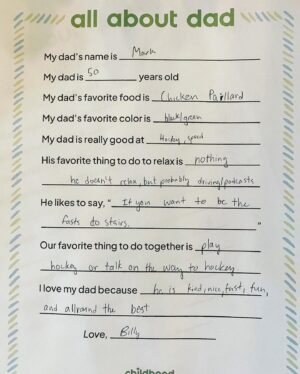 all about dad
My dad's name is Mark
My dad is 50 years old
My dad's favorite food is Chicken Paillard
My dad's favorite color is black/green
My dad is really good at Hockey, speed
His favorite thing to do to relax is nothing
he doesn't relax, but probably driving/podcasts
He likes to say, " If you want to be the
fasts do stairs. "
Our favorite thing to do together is play
hockey or talk on the way to hockey
I love my dad because he is kind, nice, fast, fun,
and allround the best
Love, Billy
childhood